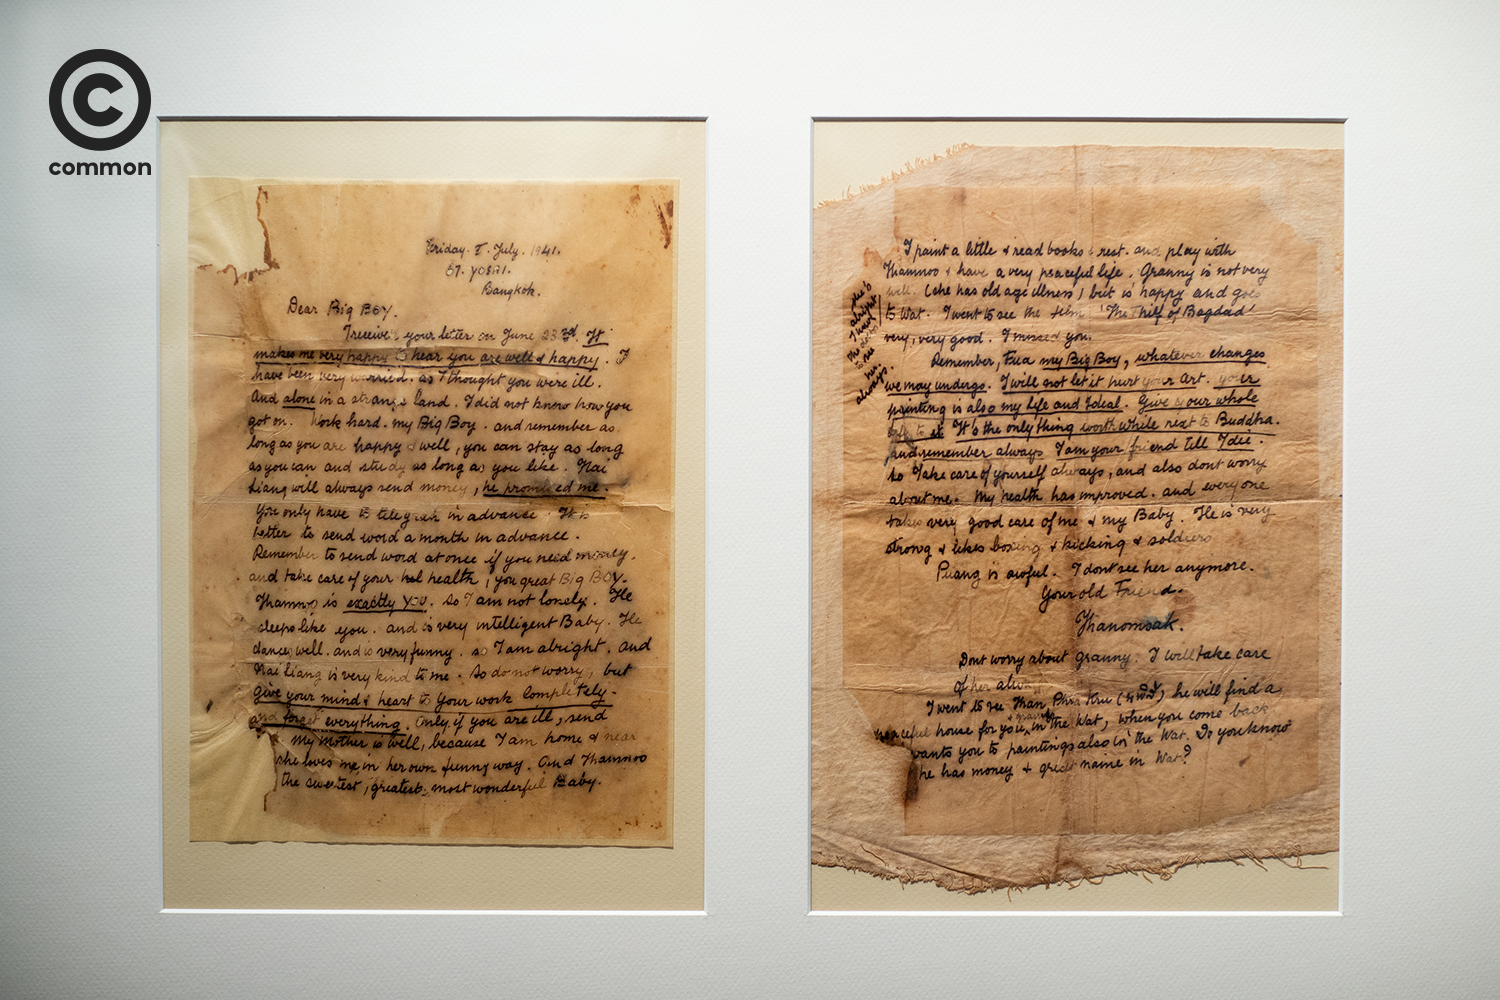 common
Friday. July. 1941.
57.
Bangkok.
Dear Big Boy.
I received your letter on June 23rd. It
makes me very happy to hear you are well & happy. I
have been very worried. as I thought you were ill.
And alone in a strange land. I did not know how you
got on. Work hard. my Big Boy. and remember as
long as you are happy & well, you can stay as long
as you can and study as long as you like. Nai
Liang will always send money, he promised me.
You only have to telegraph in advance. It is
better to send word a month in advance.
Remember to send word at once if you need money.
and take care of your health, you great Big Boy.
Thamnoo is exactly YOU. so I am not lonely. He
sleeps like you. and is very intelligent Baby. He
dances well. and is very funny. so I am alright. and
Nai Liang is very kind to me. So do not worry, but
give your mind & heart to your work completely.
and forget everything. Only if you are ill, send
my mother is well, because I am home & near
she loves me in her own funny way. And Thamnoo
the sweetest, greatest, most wonderful Baby.
I paint a little & read books & rest. and play with
Thamnoo & have a very peaceful life. Granny is not very
well. (she has old age illness) but is happy and goes
to Wat. I went to see the film 'The Thilf of Bagdad'
very, very good. I missed you.
she's
alright
I have
the doctor
to see
her
always.
Remember, Fua my Big Boy, whatever changes
we may undergo. I will not let it hurt your Art. your
painting is also my life and Ideal. Give your whole
life to it It's the only thing worth while next to Buddha.
and remember always I am your friend till I die.
so take care of yourself always, and also dont worry
about me. My health has improved. and everyone
takes very good care of me & my Baby. He is very
strong & likes boxing & kicking & soldiers
Puang is awful. I dont see her anymore.
Your old Friend.
Thanomsak.
Dont worry about granny. I will take care
of her always
I went to see Than Phra Kru he will find a
peaceful house for you & granny in the Wat, when you come back
wants you to paintings also in the Wat. Do you know
he has money & great name in Wat?